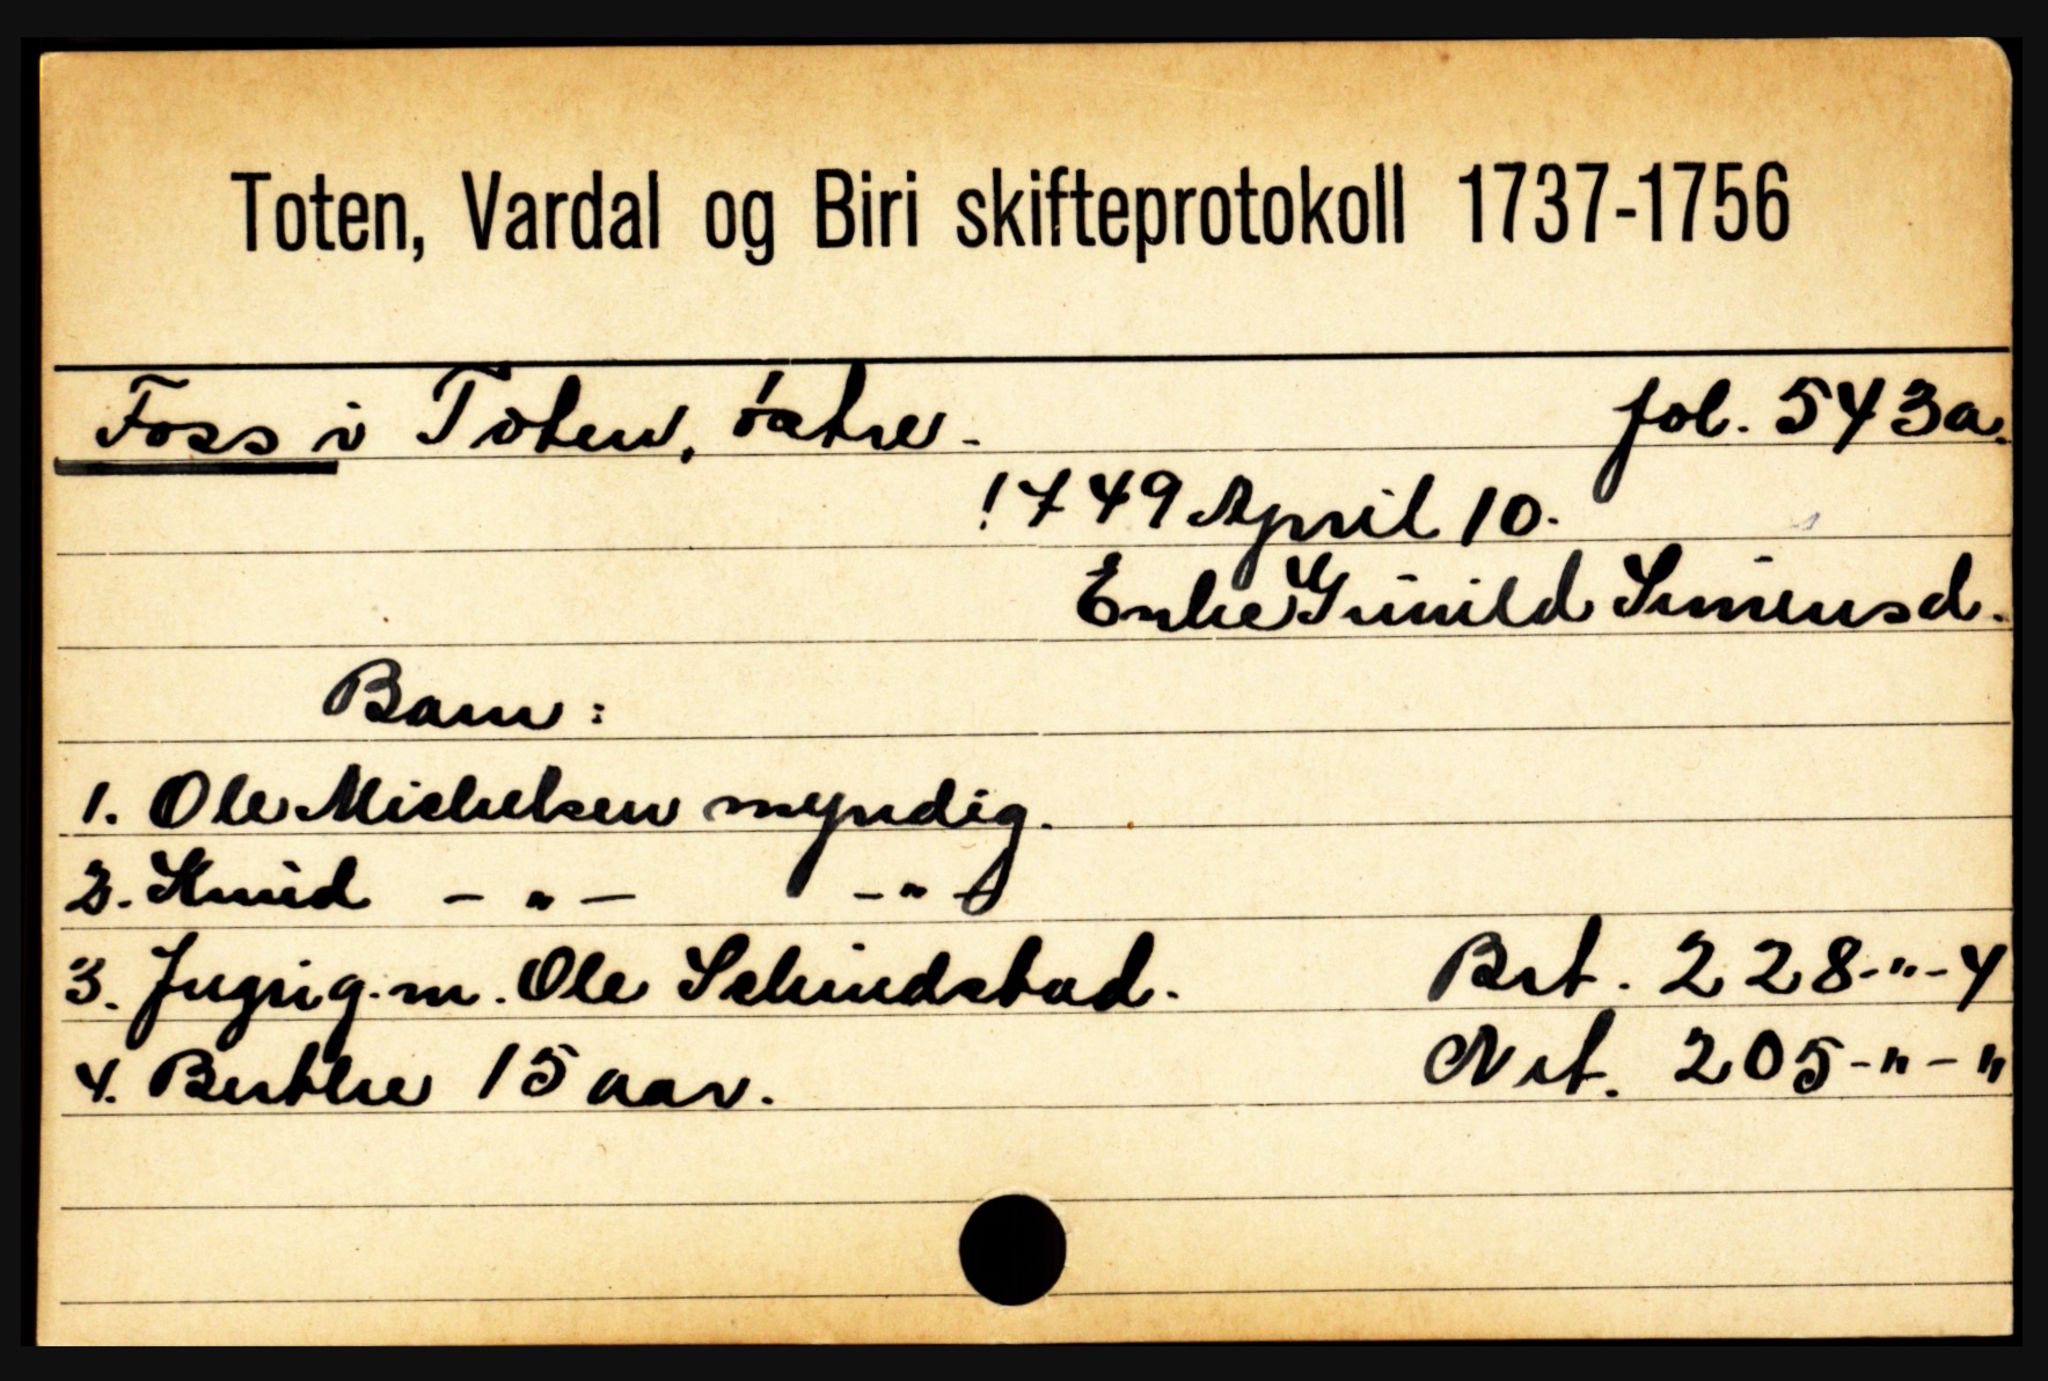 Toten, Vardal og Biri skifteprotokoll 1737-1756
Foss i Toten, östre. fol. 543a.
1749 April 10.
Enke Gunild Simensd.
Barn:
1. Ole Michelsen myndig.
2. Knud - " - - " -
3. Ingrig. m. Ole Schindstad. Brt. 228-"-4
4. Berthe 15 aar. Nrt. 205-"-"